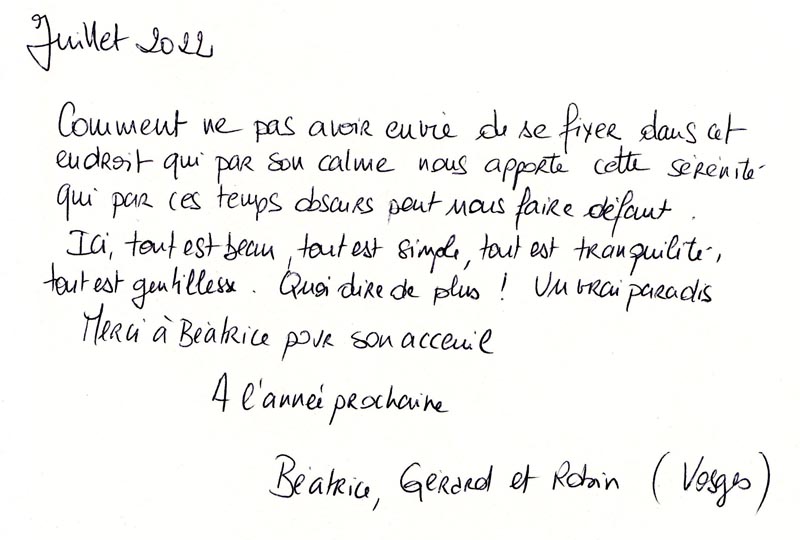 Juillet 2022
Comment ne pas avoir envie de se fixer dans cet
endroit qui par son calme nous apporte cette sérénité
qui par ces temps obscurs peut nous faire défaut.
Ici, tout est beau, tout est simple, tout est tranquilité,
tout est gentillesse. Quoi dire de plus ! Un vrai paradis
Merci à Béatrice pour son acceuil
A l'année prochaine
Béatrice, Gérard et Robin (Vosges)